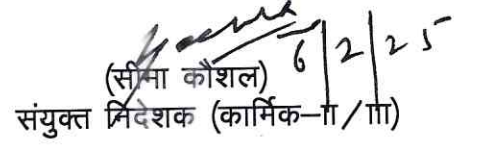 6/2/25
(सीमा कौशल)
संयुक्त निदेशक (कार्मिक-II/III)